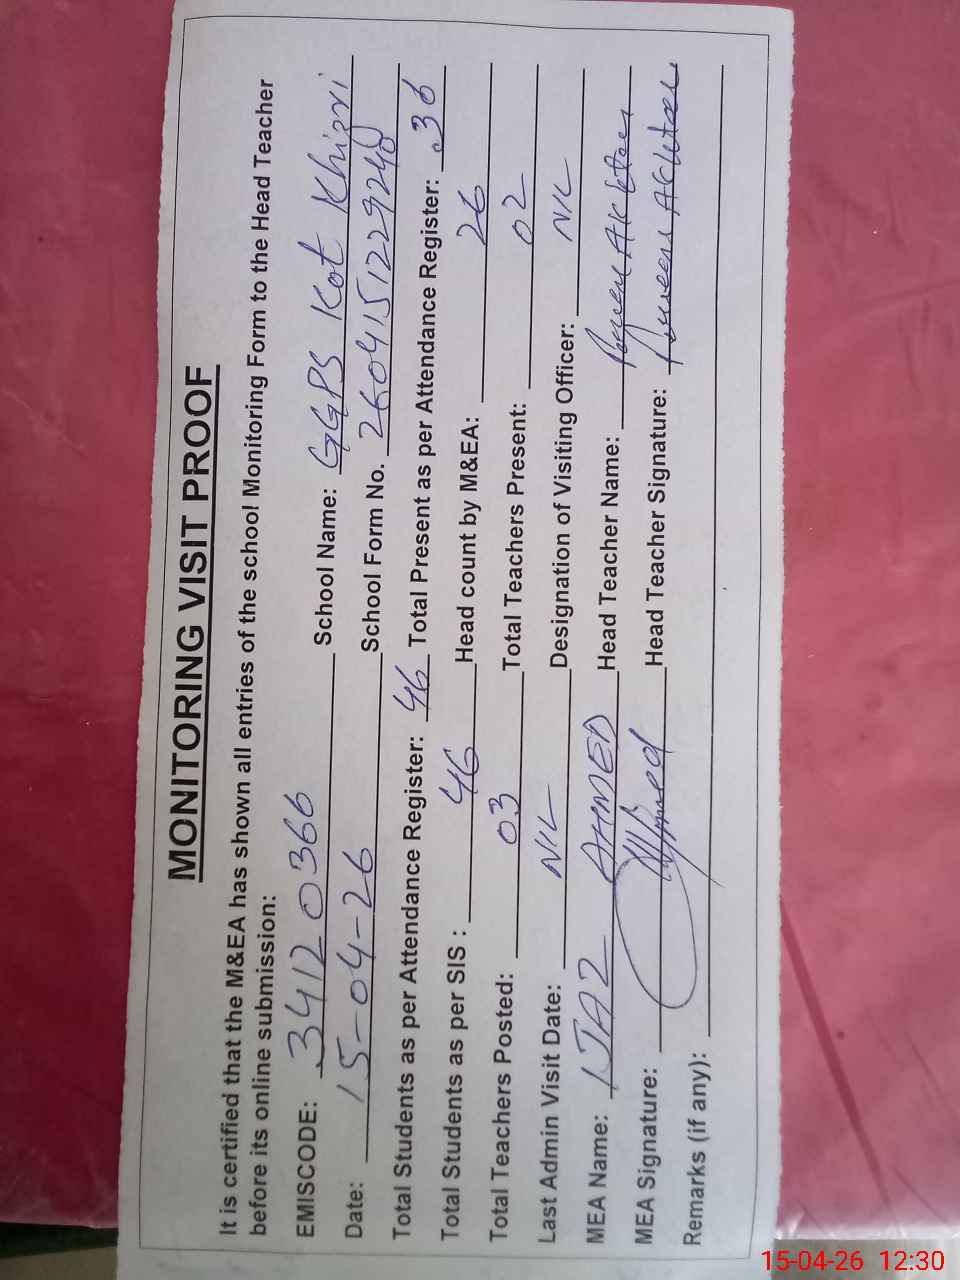 MONITORING VISIT PROOF
It is certified that the M&EA has shown all entries of the school Monitoring Form to the Head Teacher
before its online submission:
EMISCODE: 34120366 School Name: GGPS Kot Khizri
Date: 15-04-26 School Form No. 2604151229248
Total Students as per Attendance Register: 46 Total Present as per Attendance Register: 36
Total Students as per SIS : 46 Head count by M&EA: 26
Total Teachers Posted: 03 Total Teachers Present: 02
Last Admin Visit Date: NIL Designation of Visiting Officer: NIL
MEA Name: IJAZ AHMED Head Teacher Name: Akhtar
MEA Signature: Head Teacher Signature: Akhtar
Remarks (if any):
15-04-26 12:30